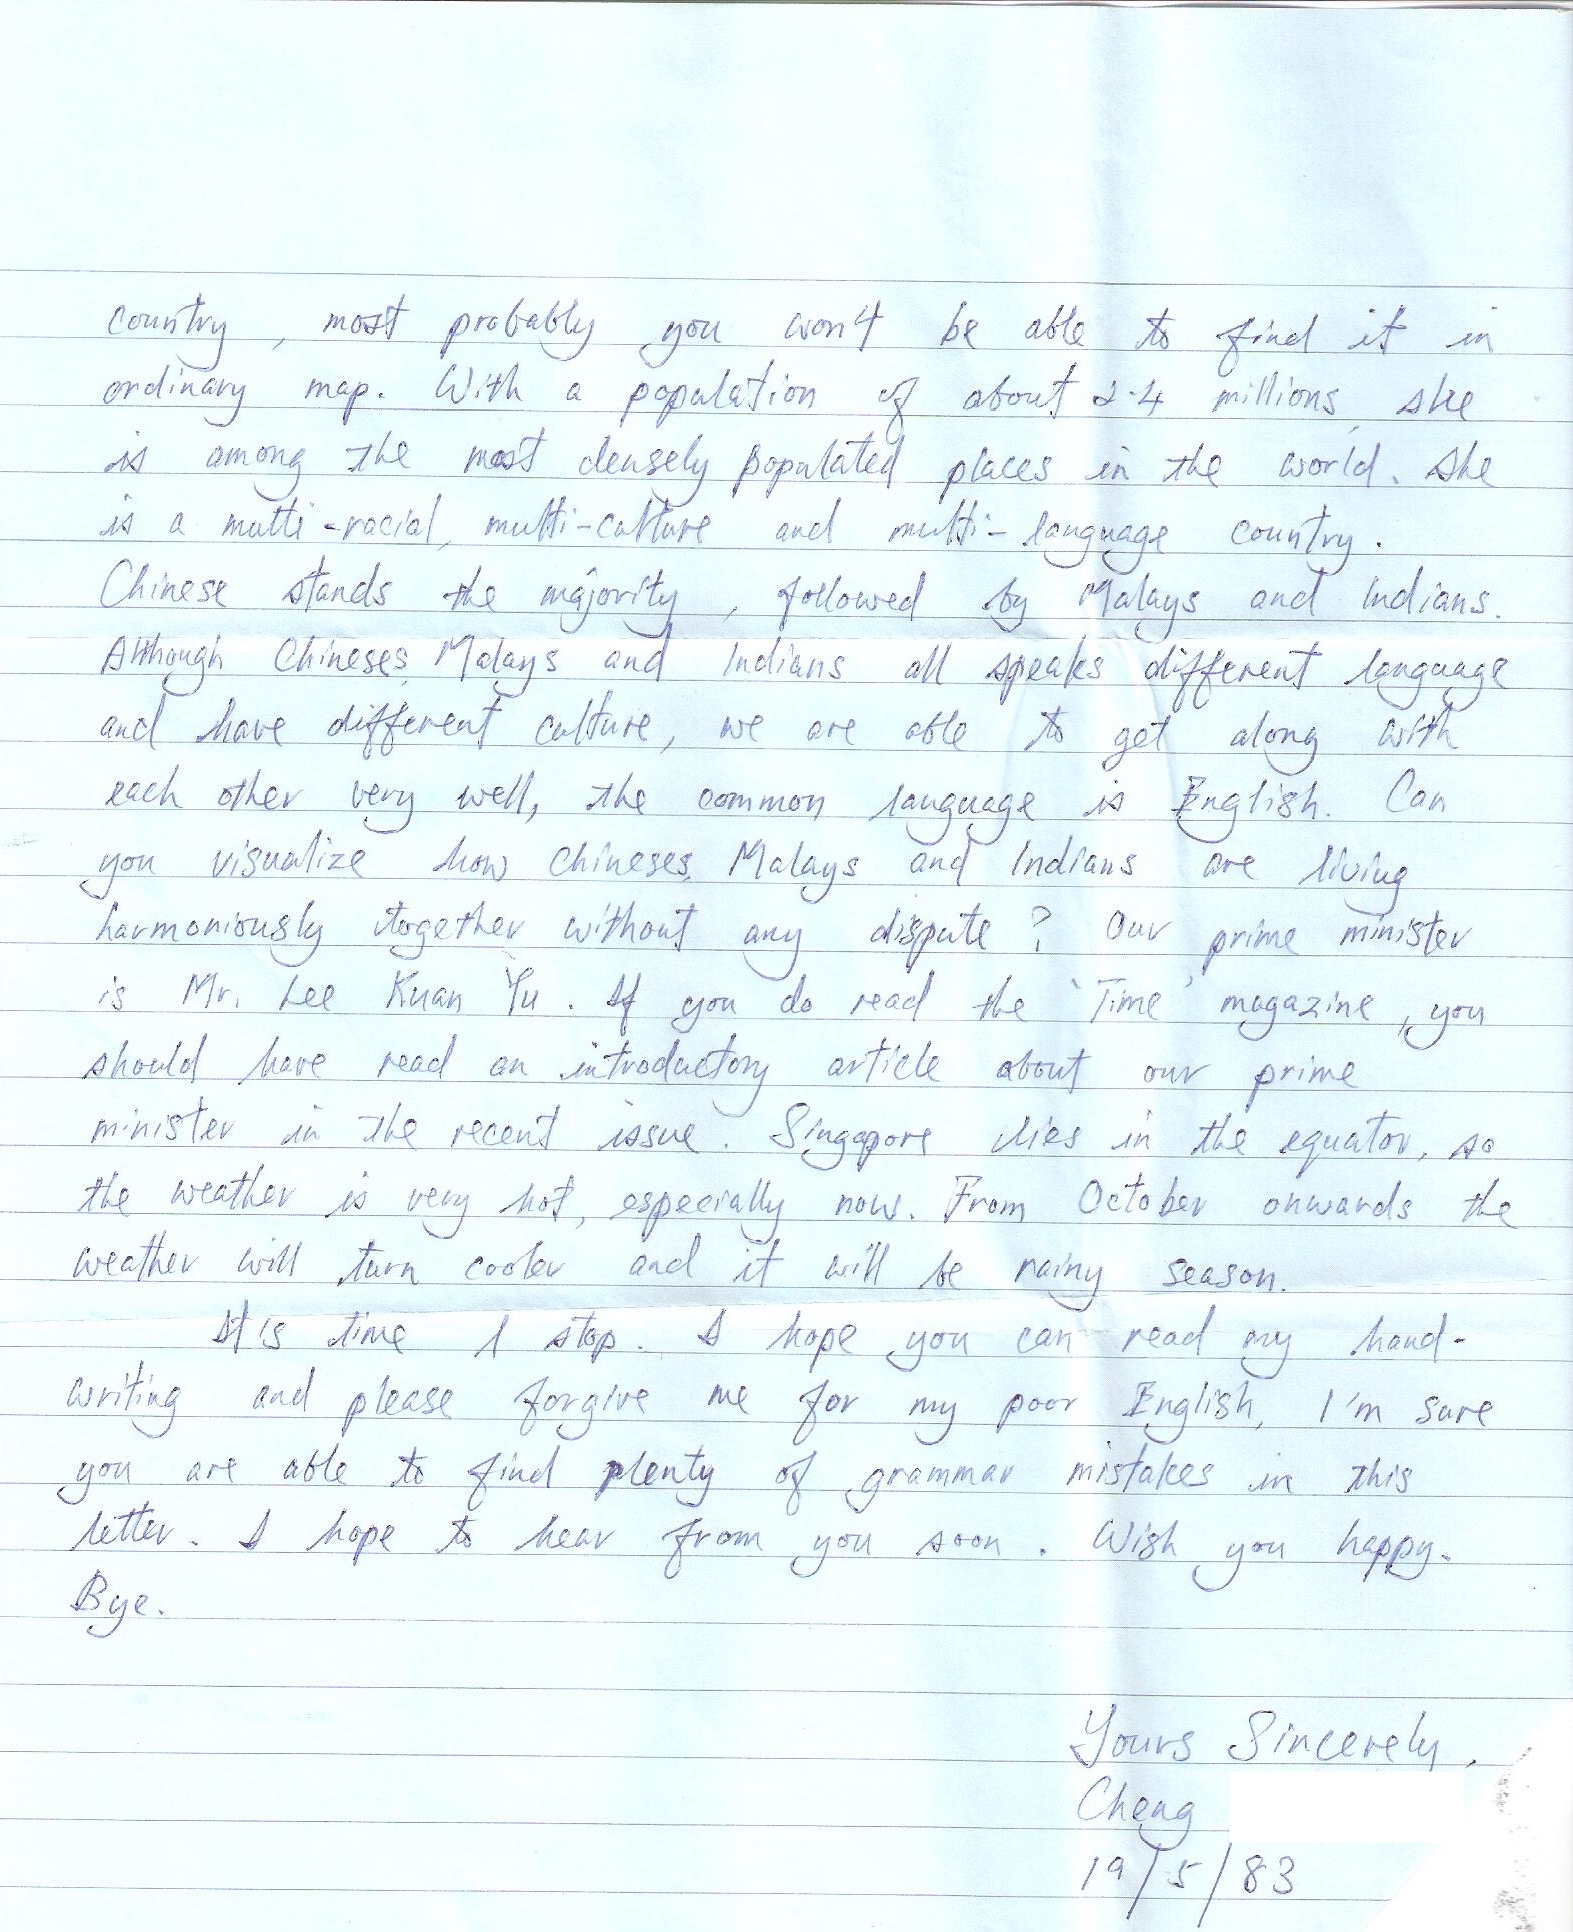 country , most probably you won't be able to find it in
ordinary map. With a population of about 2.4 millions, she
is among the most densely populated places in the world. She
is a multi-racial, multi-culture and multi-language country.
Chinese stands the majority , followed by Malays and Indians.
Although Chineses, Malays and Indians all speaks different language
and have different culture, we are able to get along with
each other very well, the common language is English. Can
you visualize how Chineses, Malays and Indians are living
harmoniously together without any dispute ? Our prime minister
is Mr. Lee Kuan Yu . If you do read the 'Time' magazine , you
should have read an introductory article about our prime
minister in the recent issue . Singapore lies in the equator, so
the weather is very hot, especially now. From October onwards the
weather will turn cooler and it will be rainy season.
It's time I stop. I hope you can read my hand-
writing and please forgive me for my poor English, I'm sure
you are able to find plenty of grammar mistakes in this
letter. I hope to hear from you soon . Wish you happy.
Bye.
Yours Sincerely,
Cheng
19/5/83